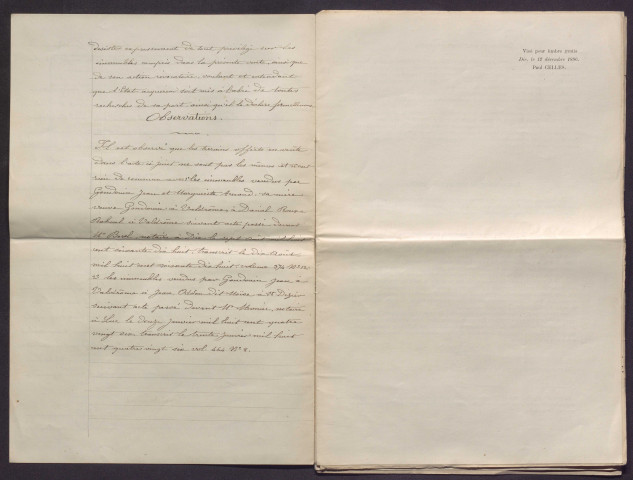 désister expressément de tout privilège sur les
immeubles compris dans la présente vente, ainsi que
de son action résolutoire, voulant et entendant
que l'Etat acquéreur soit mis à l'abri de toutes
recherches de sa part, ainsi qu'il le déclare formellement
Observations.
Il est observé que les terrains offerts en vente
dans l'acte ci joint ne sont pas les mêmes et n'ont
rien de commun avec 1° les immeubles vendus par
Gondouin Jean et Marguerite sa mère
veuve Gondouin à Valdrôme, à Daniel
à Valdrôme suivant acte passé devant
M° notaire à Die le
cent soixante dix huit, transcrit le dix Août
mil huit cent soixante dix huit, volume 374 N°
2° les immeubles vendus par Gondouin Jean à
Valdrôme à Jean dit à St Dizier
suivant acte passé devant M° notaire
à Luc le douze janvier mil huit cent quatre
vingt six transcrit le trente janvier mil huit
cent quatre vingt six vol. 444 N° 2.
Visa pour timbre gratis
Die, le 12 décembre 1896.
Paul CELLES.